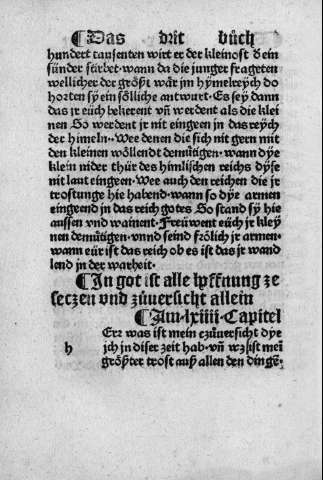 ¶ Das drit bůch
hundert tausenten wirt er der kleinost d ein
sünder stirbet·wann da die junger frageten
wellicher der grőßt wår jm hymelreych do
horten sy ein sőlliche antwurt·Es sey dann
das jr eüch bekerent vñ werdent als die klei
nen So werdent jr nit eingeen in das reych
der himeln·Wee denen die sich nit gern mit
den kleinen wőllendt demůtigen·wann dye
klein nider thür des himlischen reichs dyse
nit laut eingeen·Wee auch den reichen die jr
trostunge hie habend·wann so dye armen
eingeend in das reich gotes So stand sy hie
aussen vnd wainent·Freüwent eüch jr kley
nen demůtigen·vnnd seind frőlich jr armen·
wann eür ist das reich ob es ist das jr wand
lend in der warheit·
¶ In got ist alle hoffnung ze
seczen vnd zůuersicht allein
¶ Am·lxiiii·Capitel
Err was ist mein czůuersicht dye
h jch in diser zeit hab·vñ wz ist meī
grőßter trost auß allen den dingē·